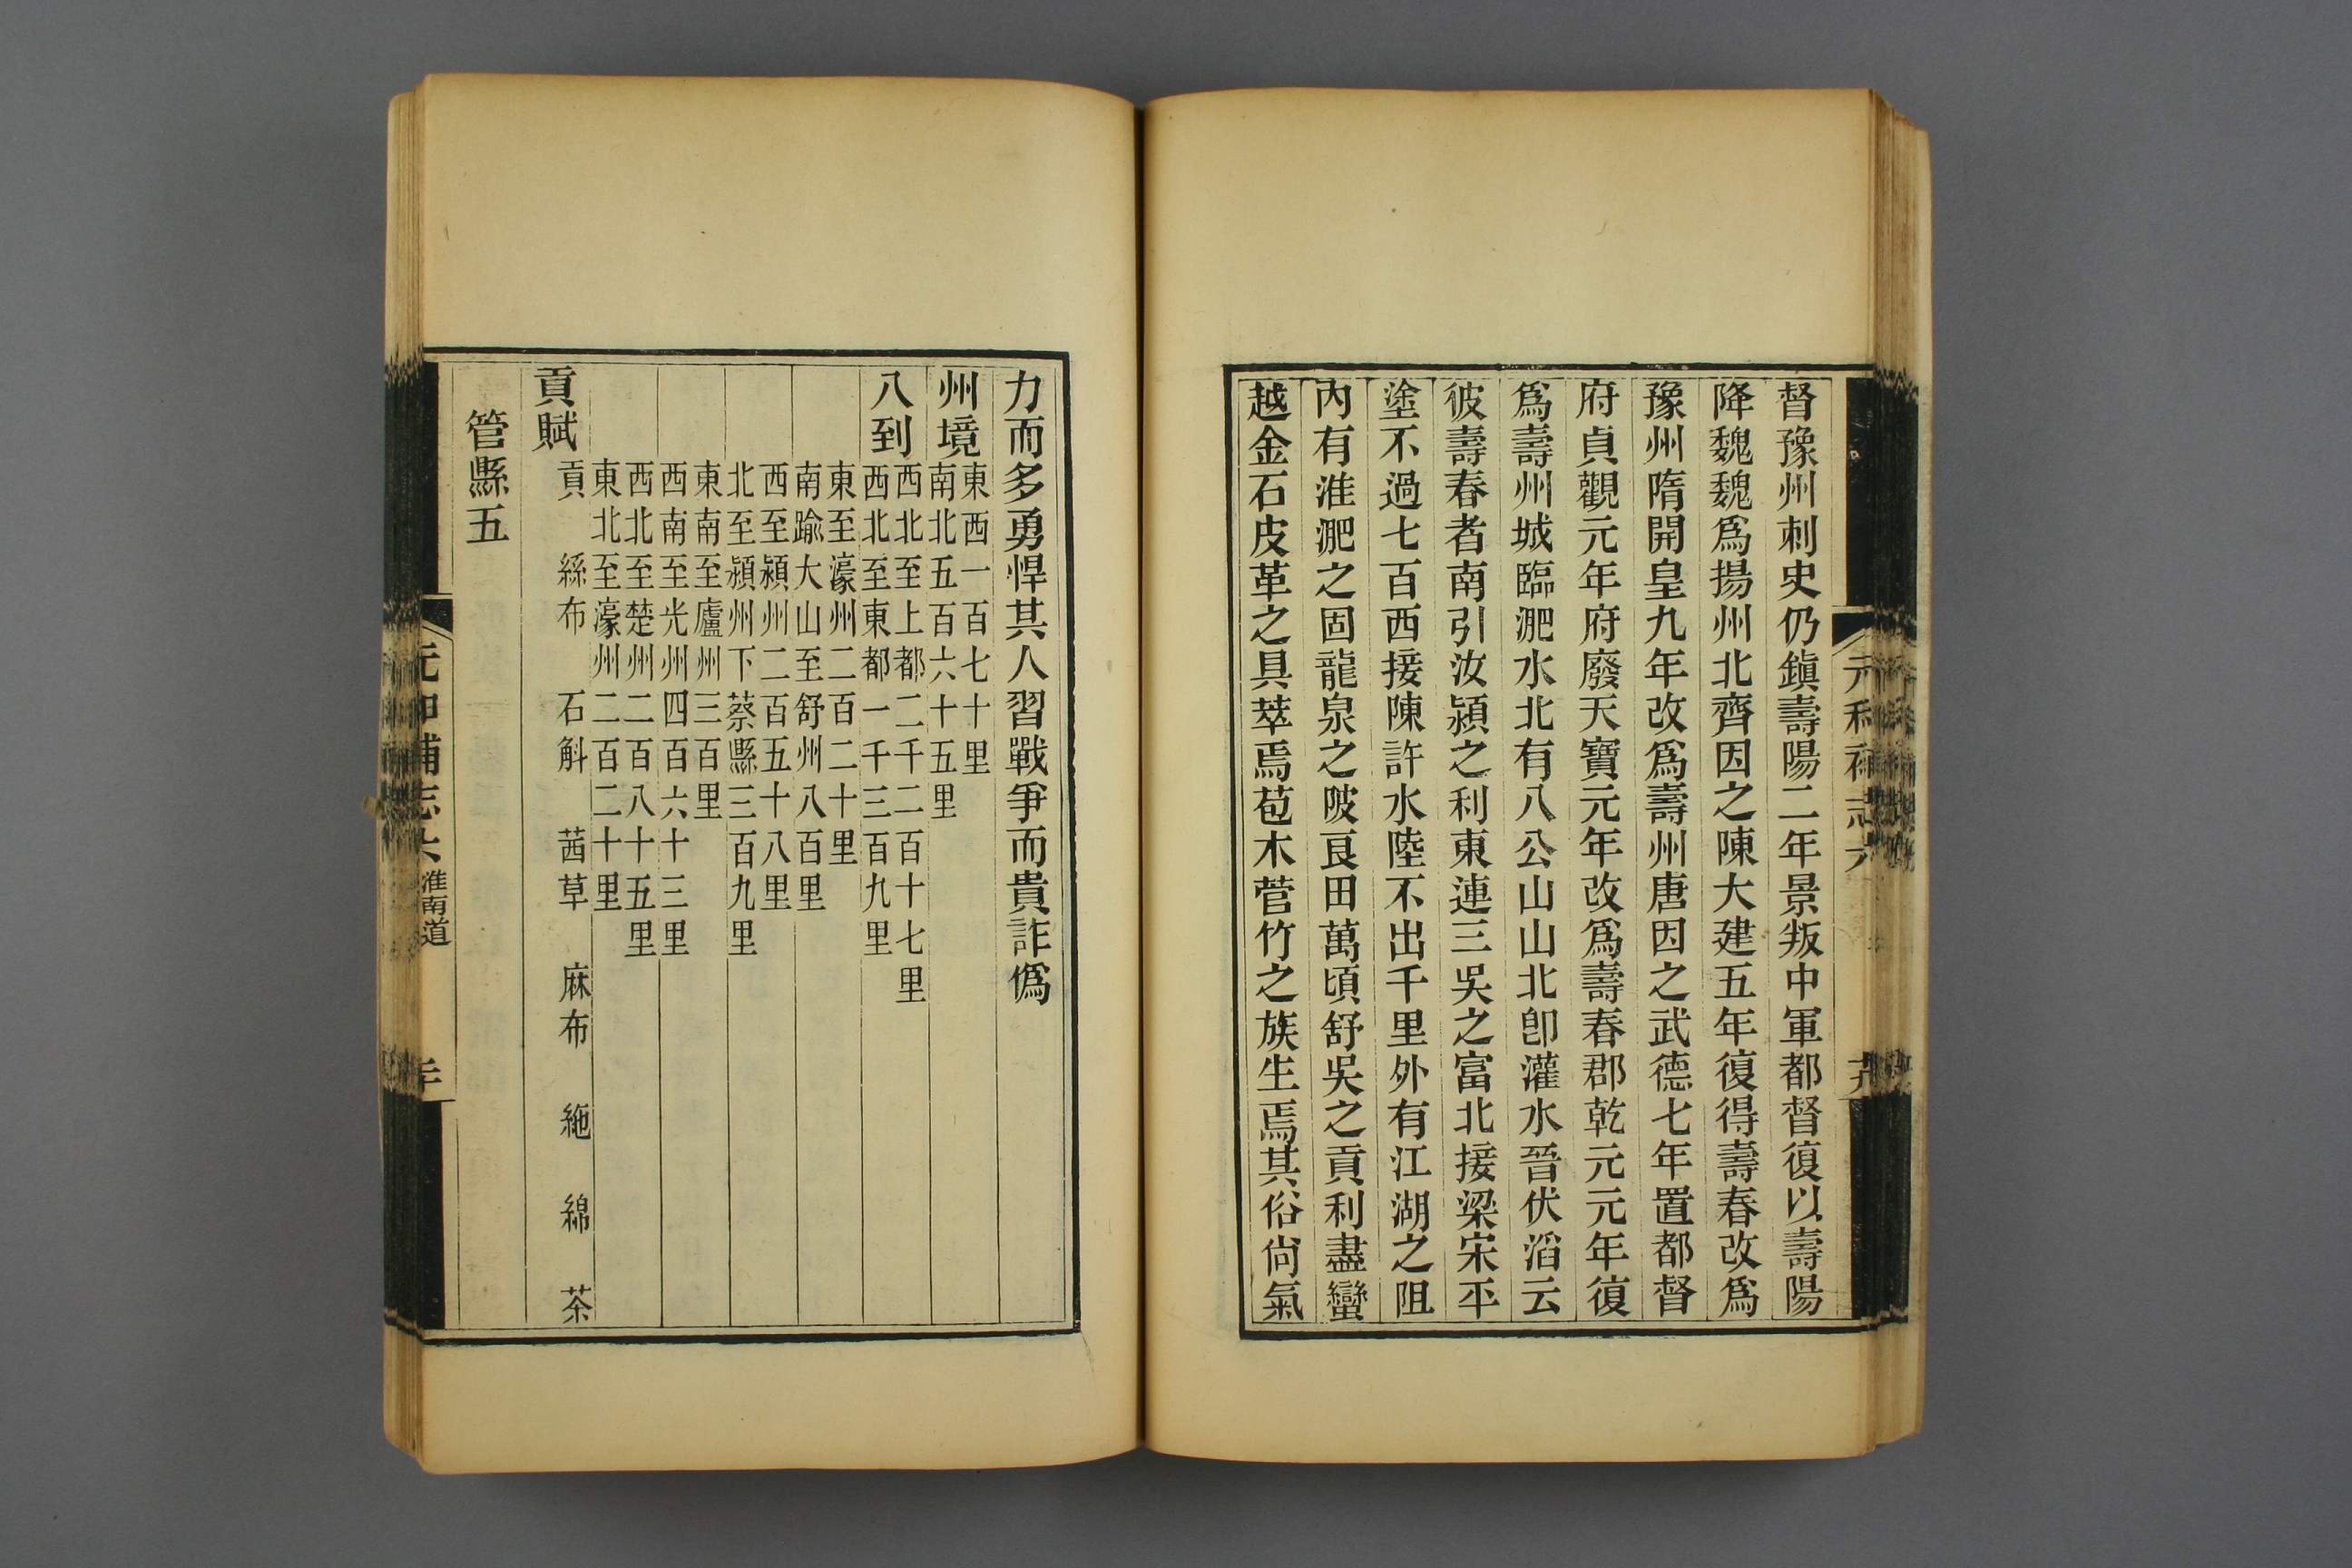 督豫州刺史仍鎮壽陽二年景叛中軍都督復以壽陽
降魏魏爲揚州北齊因之陳大建五年復得壽春改爲
豫州隋開皇九年改爲壽州唐因之武德七年置都督
府貞觀元年府廢天寶元年改爲壽春郡乾元元年復
爲壽州城臨淝水北有八公山山北卽灌水晉伏滔云
彼壽春者南引汝潁之利東連三吳之富北接梁宋平
塗不過七百西接陳許水陸不出千里外有江湖之阻
內有淮淝之固龍泉之陂良田萬頃舒吳之貢利盡蠻
越金石皮革之具萃焉苞木菅竹之族生焉其俗尙氣
力而多勇悍其人習戰爭而貴詐僞
州境
東西一百七十里
南北五百六十五里
八到
西北至上都二千二百十七里
西北至東都一千三百九里
東至濠州二百二十里
南踰大山至舒州八百里
西至潁州二百五十八里
北至潁州下蔡縣三百九里
東南至廬州三百里
西南至光州四百六十三里
西北至楚州二百八十五里
東北至濠州二百二十里
貢賦
貢 絲布 石斛 茜草 麻布 絁 綿 茶
管縣五
淮南道